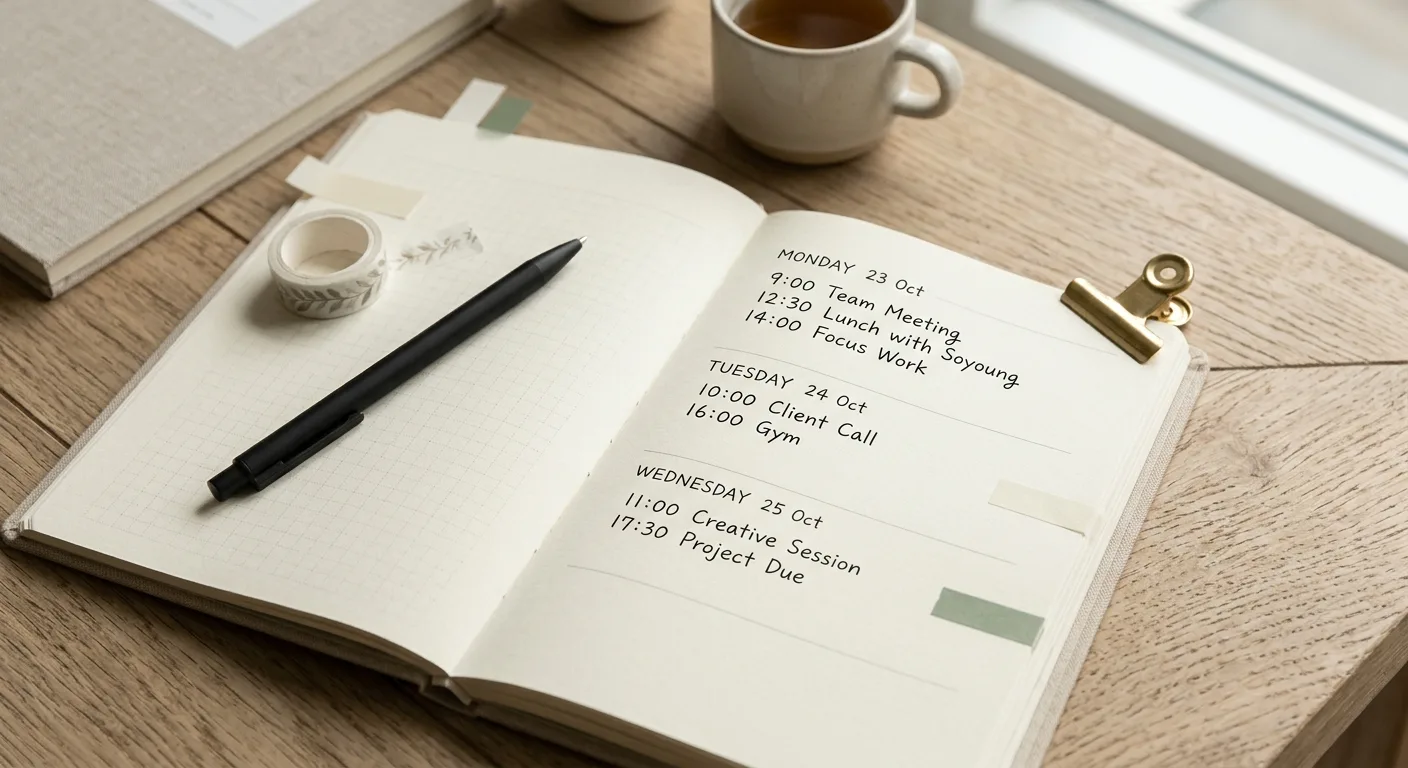 MONDAY 23 Oct
9:00 Team Meeting
12:30 Lunch with Soyoung
14:00 Focus Work
TUESDAY 24 Oct
10:00 Client Call
16:00 Gym
WEDNESDAY 25 Oct
11:00 Creative Session
17:30 Project Due